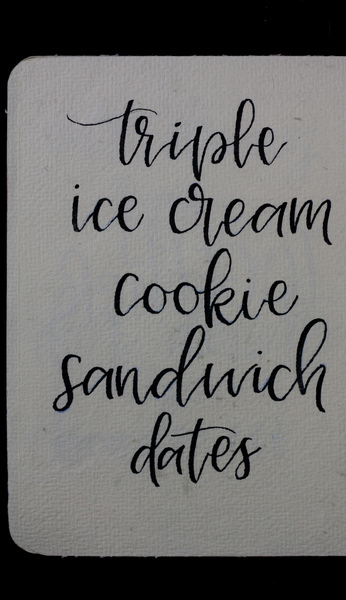 triple
ice cream
cookie
sandwich
dates